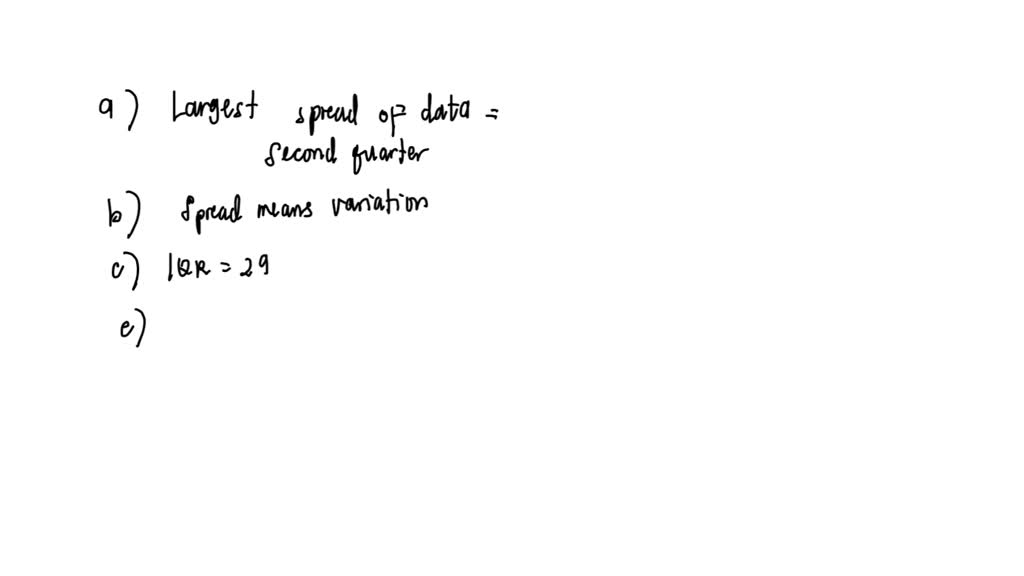 a) Largest spread of data =
second quarter
b) Spread means variation
c) IQR = 29
e)